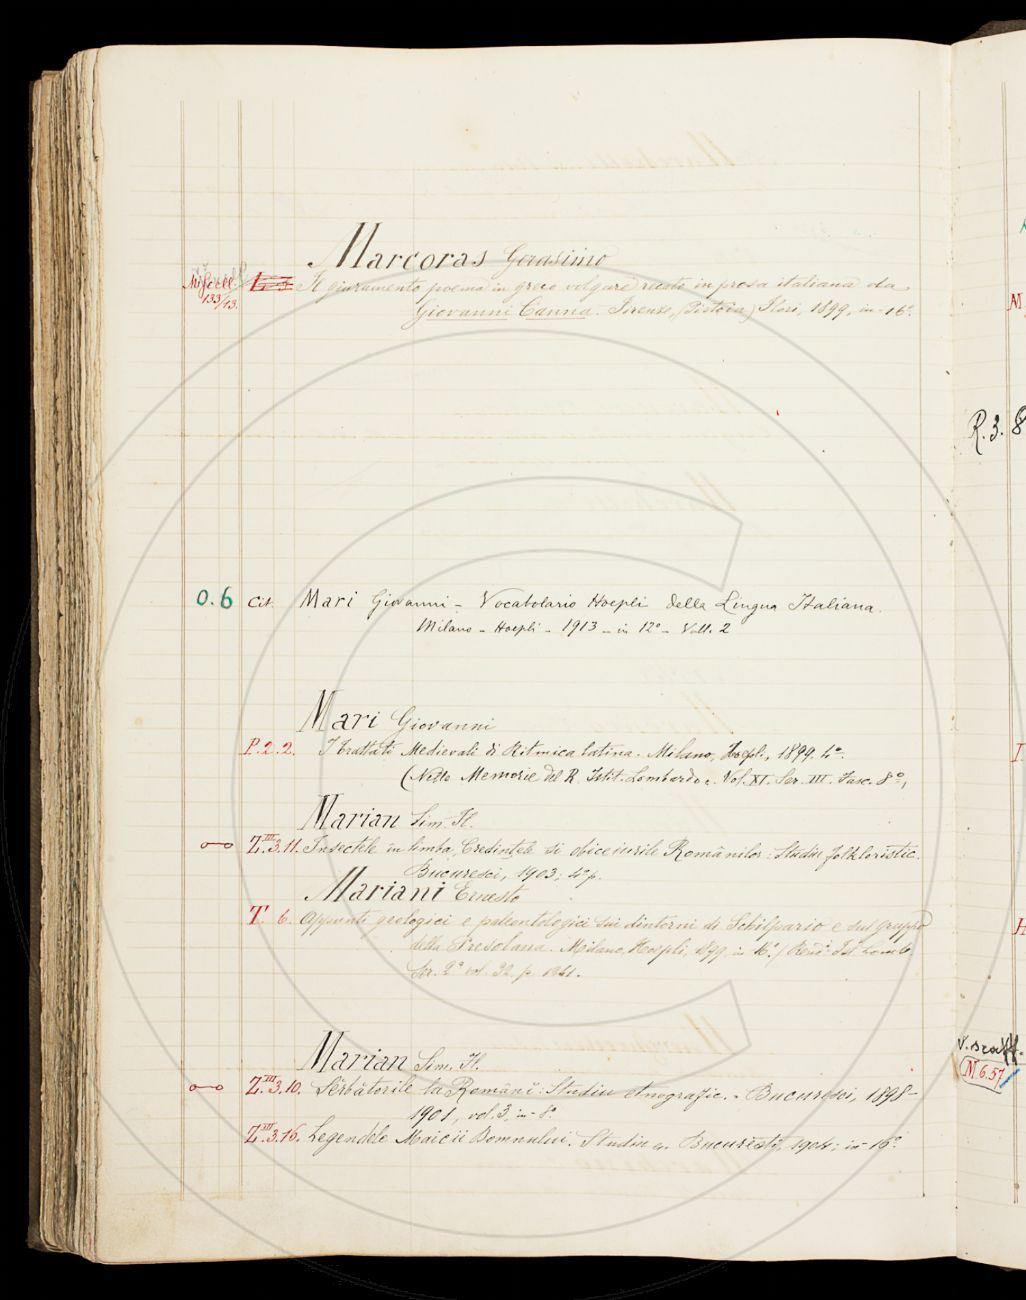 Marcoras Gerasimo
Miscell. 133/13. Il giuramento poema in greco volgare recato in prosa italiana da
Giovanni Canna. Firenze, (Pistoia) Flori, 1899, in-16°.
O. 6 Cit. Mari Giovanni - Vocabolario Hoepli della Lingua Italiana.
Milano - Hoepli - 1913 - in 12° - Voll. 2
Mari Giovanni
P. 2. 2. I trattati Medievali di Ritmica latina. Milano, Hoepli, 1899. 4°.
(Nelle Memorie del R. Istit. Lombardo. Vol. XI. Ser. III. Fasc. 8°,
Marian Sim. Fl.
Z.III.3.11. Insectele in limba, Credințele si obiceiurile Românilor: Studiu folkloristic.
Bucuresci, 1903; 4° p.
Mariani Ernesto
T. 6. Appunti geologici e paleontologici sui dintorni di Schilpario e sul gruppo
della Presolana. Milano, Hoepli, 1899 in 16°. (Rend. Ist. Lomb.
Ser. 2ª vol. 32. p. 1241.
Marian Sim. Fl.
Z.III.3.10. Sĕrbătorile la Românĭ: Studiu etnografic. - Bucuresci, 1898-
1901, vol. 3, in-8°.
Z.III.3.16. Legendele Maicii Domnului. Studiu Bucuresti, 1904; in-16°.
R. 3. 8
V. Sraff.
M 6.57